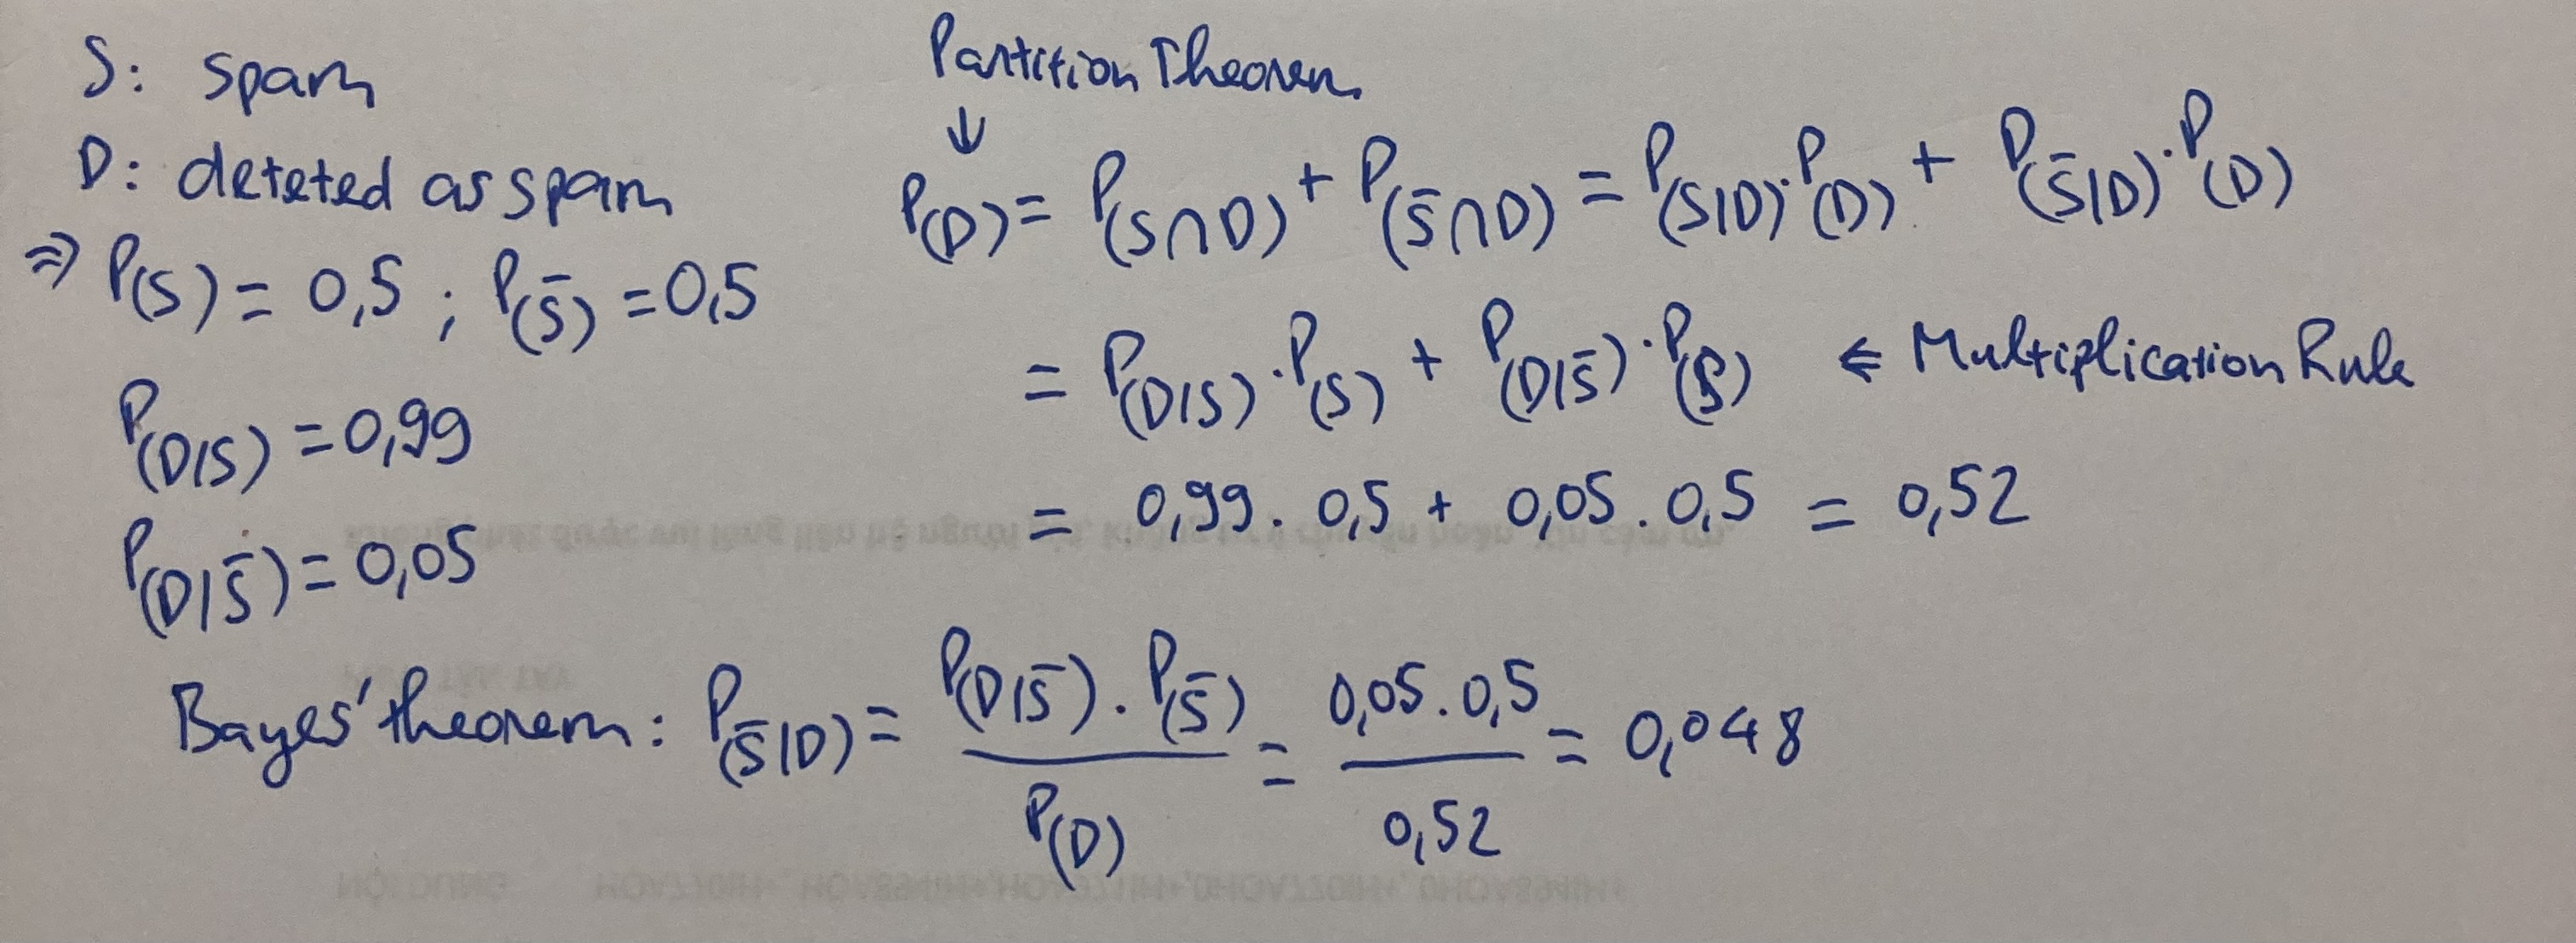 S: spam
D: deteted as spam
⇒ P(S) = 0,5 ; P(S̄) = 0,5
P(D|S) = 0,99
P(D|S̄) = 0,05
Partition Theorem
↓
P(D) = P(S∩D) + P(S̄∩D) = P(S|D).P(D) + P(S̄|D).P(D)
= P(D|S).P(S) + P(D|S̄).P(S̄) ⇐ Multiplication Rule
= 0,99 . 0,5 + 0,05 . 0,5 = 0,52
Bayes' theorem : P(S̄|D) = P(D|S̄) . P(S̄) / P(D) = 0,05 . 0,5 / 0,52 = 0,048